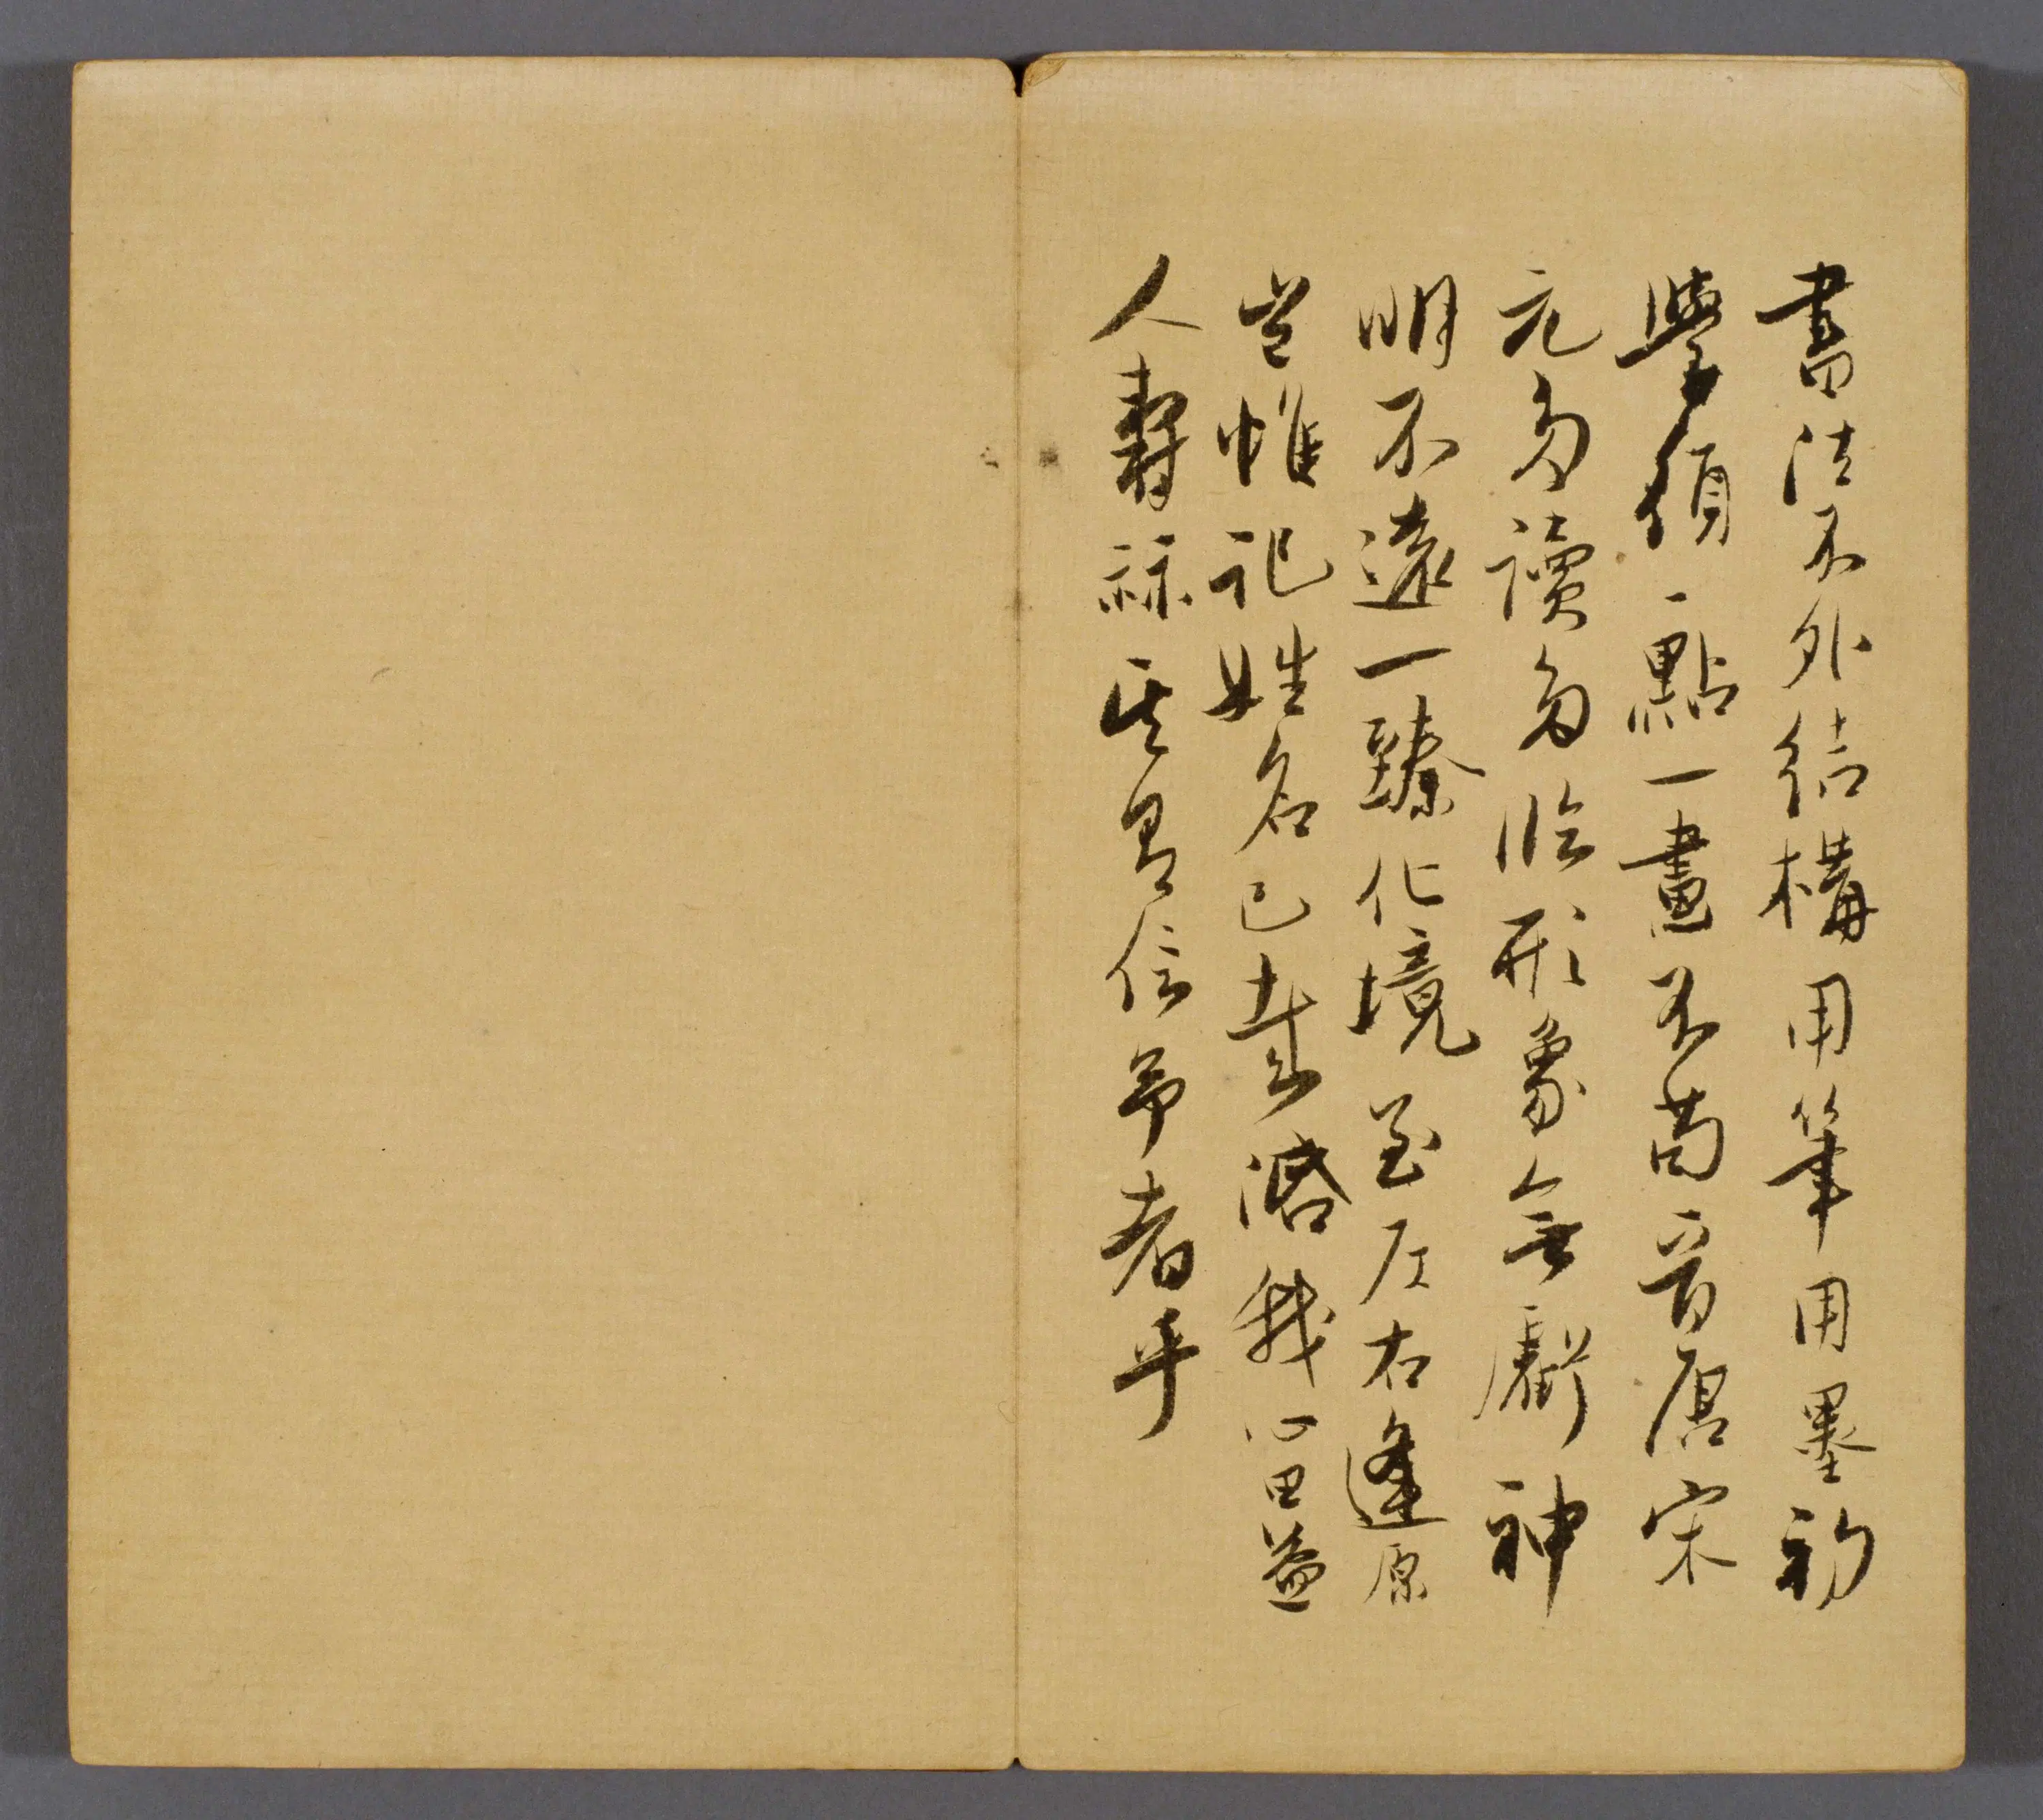 書法不外結構用筆用墨初
學須一點一畫不苟晉唐宋
元多讀多臨形象無虧神
明不遠一臻化境至左右逢原
豈惟記姓名已哉濬我心田益
人壽祺其男信筆者乎